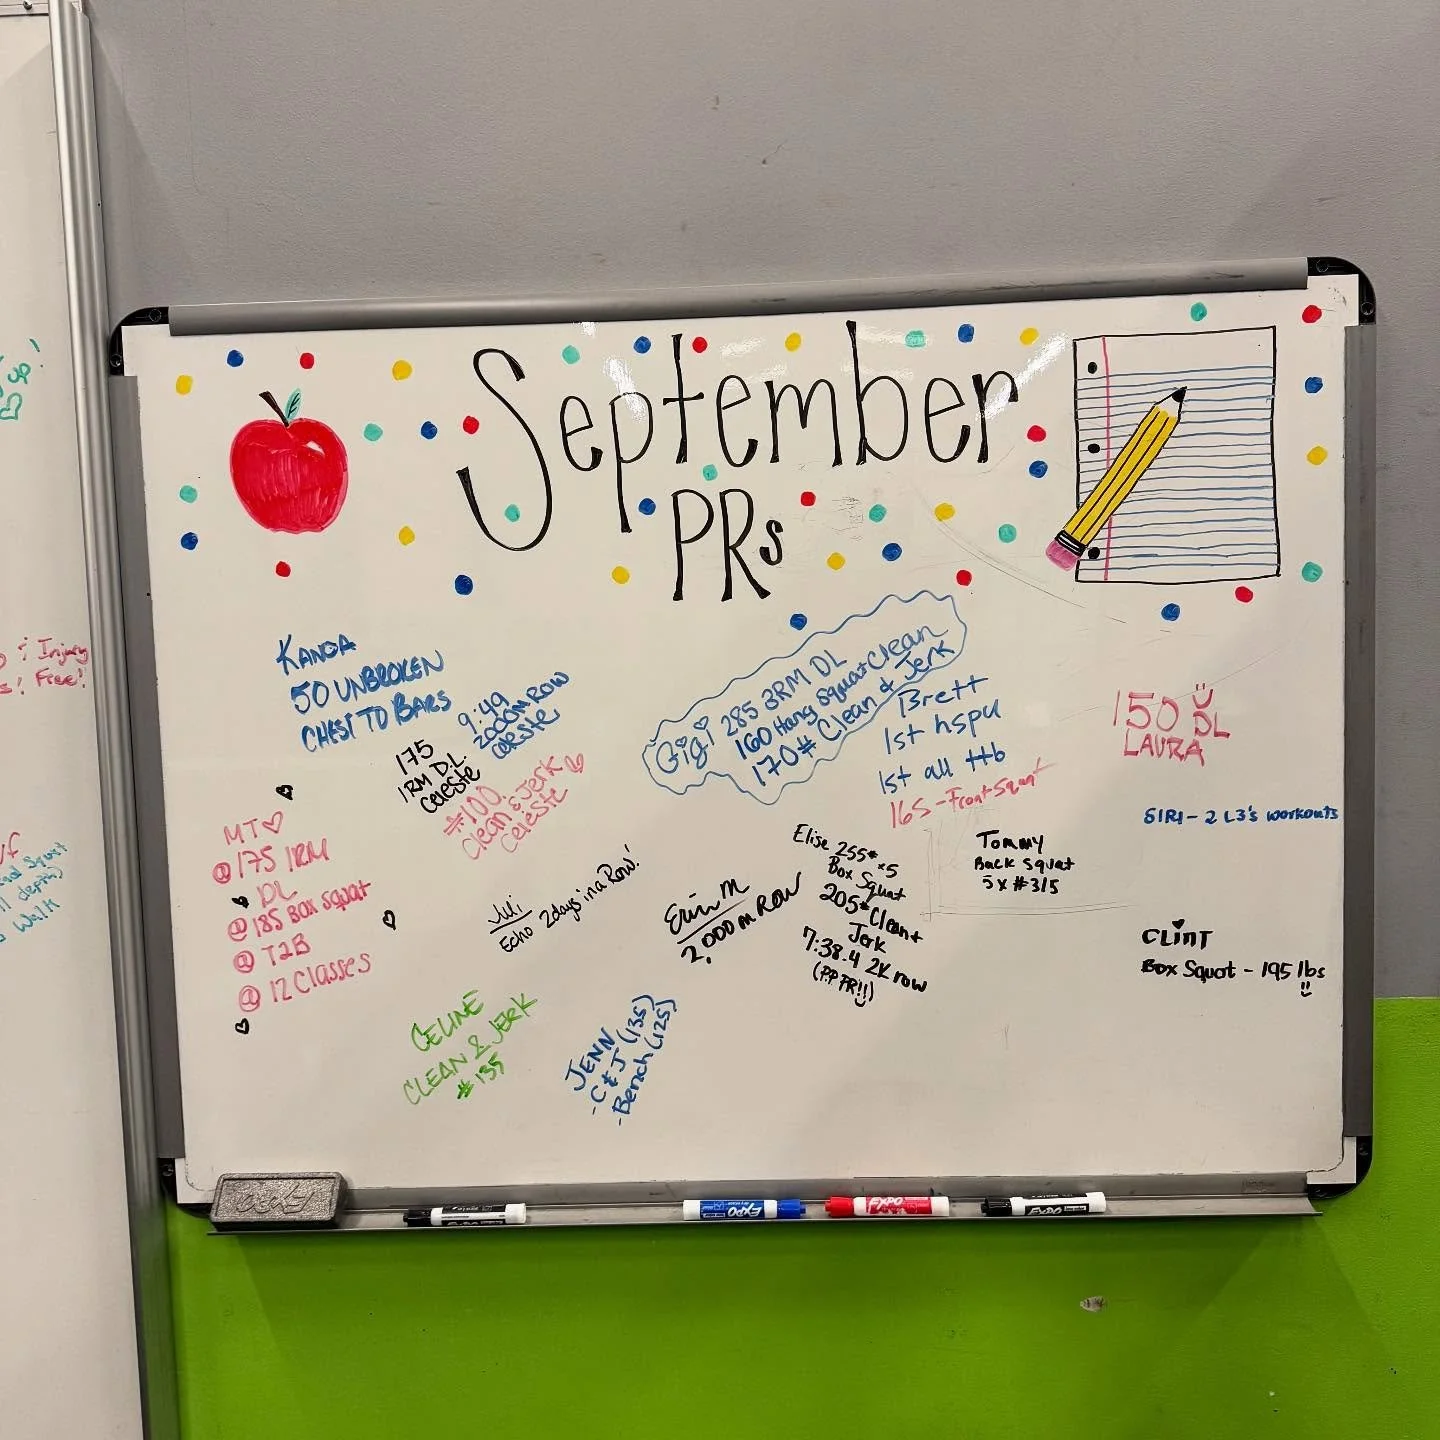 September
PRs
KANOA
50 UNBROKEN
CHEST TO BARS
9:49
2000m ROW
Celeste
175
1RM D.L.
Celeste
#100
Clean & Jerk
Celeste
Gigi 285 3RM DL
160 Hang Squat Clean
170# Clean & Jerk
Brett
1st hspu
1st all ttb
165 - Front Squat
150 DL
LAURA
SIRI - 2 L3's workouts
MT
@ 175 1RM
DL
@ 185 BOX SQUAT
@ T2B
@ 12 Classes
Juli
Echo 2days in a Row!
Erin M
2,000 m Row
Elise 255# x5
Box Squat
205# Clean +
Jerk
7:38.4 2K row
(PP PR!!)
Tommy
Back Squat
5x #315
CLiNT
Box Squat - 195 lbs
CELINE
CLEAN & JERK
#135
JENN
- C & J (135)
- Bench (125)
Injury
Free!!
Squat
depth)
Walk
EXPO
EXPO
EXPO